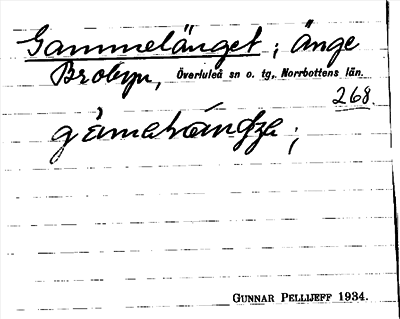 Gammelänget ; änge
Brobyn, Överluleå sn o. tg., Norrbottens län.
268
;
GUNNAR PELLIJEFF 1934.